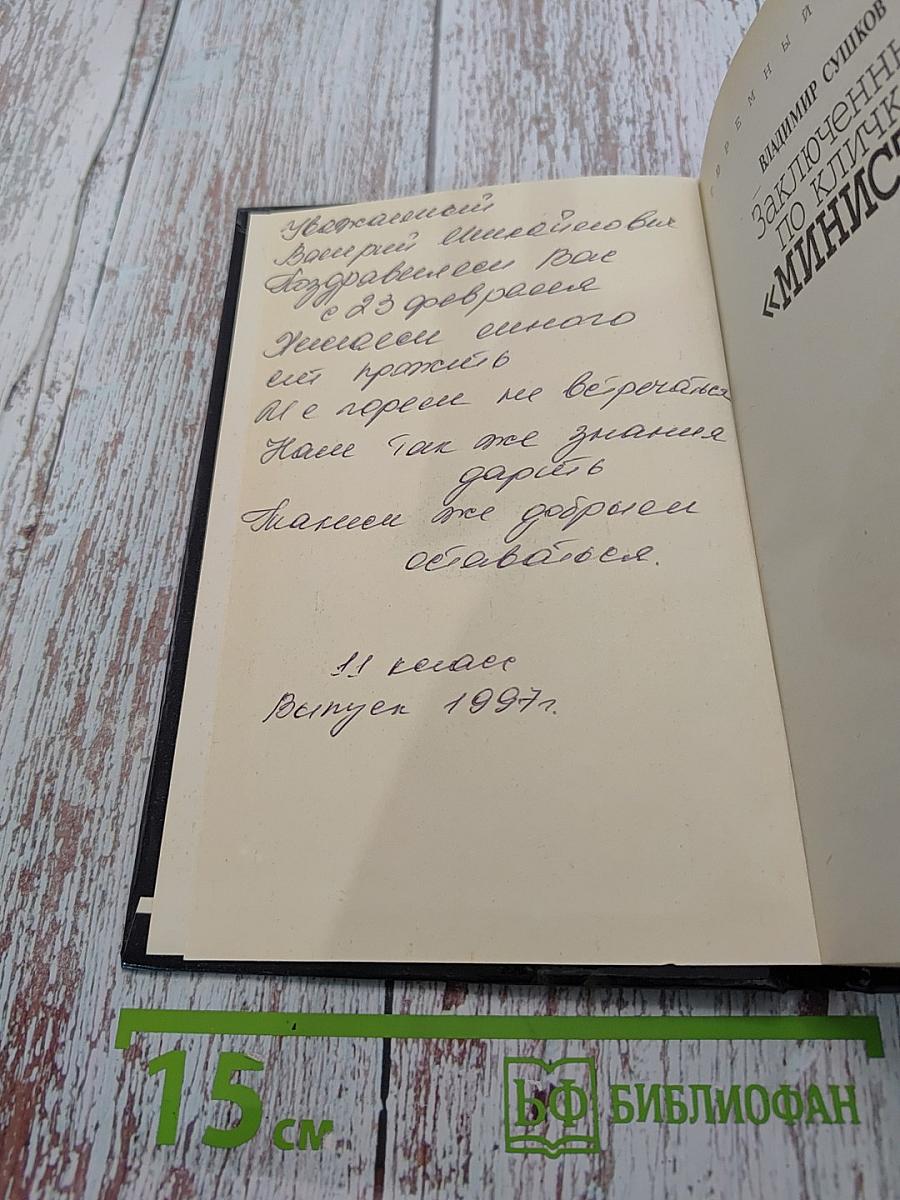 Уважаемый
Валерий Михайлович
Поздравляем Вас
с 23 февраля
Желаем много
лет прожить
И с горем не встречаться
Нам так же знания
дарить
Таким же добрым
оставаться.
11 класс
Выпуск 1997г.
ВЛАДИМИР СУШКОВ
по кличк
«МИНИСТ
15 см
БФ БИБЛИОФАН